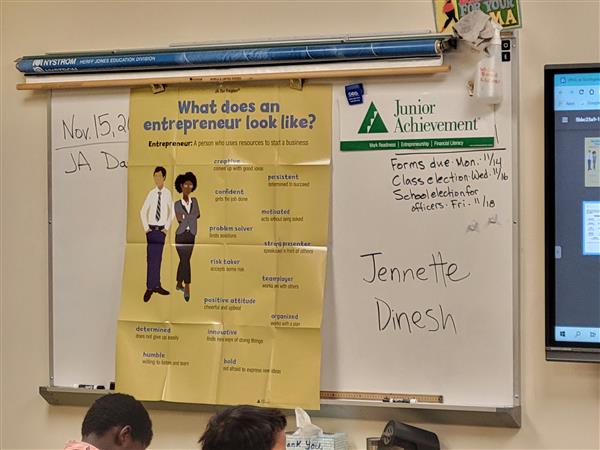 NYSTROM
HERFF JONES EDUCATION DIVISION
FOR YOUR
Nov. 15, 20
JA Da
What does an
entrepreneur look like?
Entrepreneur: A person who uses resources to start a business
creative
comes up with good ideas
persistent
determined to succeed
confident
gets the job done
motivated
acts without being asked
problem solver
finds solutions
strong presenter
speaks well in front of others
risk taker
accepts some risk
teamplayer
works well with others
positive attitude
cheerful and upbeat
organized
works with a plan
determined
does not give up easily
innovative
finds new ways of doing things
humble
willing to listen and learn
bold
not afraid to express new ideas
Junior
Achievement
Work Readiness | Entrepreneurship | Financial Literacy
Forms due: Mon. 11/14
Class election: Wed. 11/16
School election for
officers - Fri - 11/18
Jennette
Dinesh
Thank you